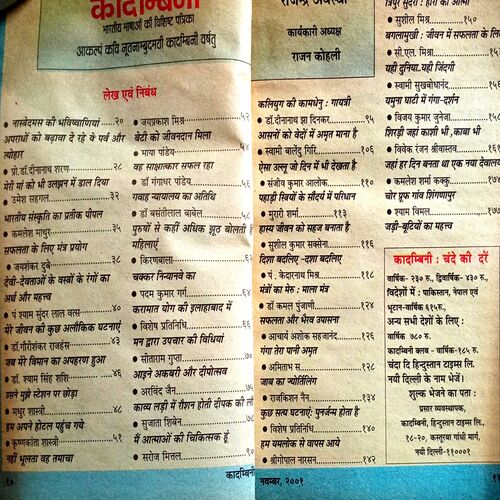 कादम्बिनी
भारतीय भाषाओं की विशिष्ट पत्रिका
आकल्पं कवि नूतनाम्बुदमयी कादम्बिनी वर्षतु
लेख एवं निबंध
नास्त्रेदमस की भविष्यवाणियां.....२०
अपराधों को बढ़ावा दे रहे ये पर्व और
त्योहार
● प्रो.डॉ.दीनानाथ शरण.....२८
मेरी मां को भी उलझन में डाल दिया
● उमेश सहगल.....३२
भारतीय संस्कृति का प्रतीक पीपल
● कमलेश माथुर.....३५
सफलता के लिए मंत्र प्रयोग
● जयशंकर दुबे.....३८
देवी-देवताओं के वस्त्रों के रंगों का
अर्थ और महत्त्व
● पं श्याम सुंदर लाल वत्स.....४०
मेरे जीवन की कुछ अलौकिक घटनाएं
● डॉ.गौरीशंकर राजहंस.....४३
जब मेरे विमान का अपहरण हुआ
● डॉ. श्याम सिंह शशि.....४६
उसने मुझे स्टेशन पर छोड़ा
● मधुर शास्त्री.....४८
हम अपने होटल पहुंच गये
● कृष्णकांता शास्त्री.....५१
नहीं भूलता वह तमाचा
● जयप्रकाश मिश्र.....५२
बेटी को जीवनदान मिला
● माया पांडेय
वह साक्षात्कार सफल रहा
● डॉ गंगाधर पांडेय.....५६
गवाह न्यायालय का अतिथि
● डॉ बसंतीलाल बाबेल.....५८
पुरुषों से कहीं अधिक झूठ बोलती हैं
महिलाएं
● किरणबाला.....६२
चक्कर निन्यानवे का
● पदम कुमार गर्ग.....६४
करामात योग की इलाहाबाद में
● विशेष प्रतिनिधि.....६६
मन द्वारा उपचार की विधियां
● सीताराम गुप्ता.....७०
आइने अकबरी और दीपोत्सव
● अरविंद जैन
काव्य लड़ी में रौशन होती दीपक की लौ
● सुजाता शिवेन
मैं आत्माओं की चिकित्सक हूं
● सरोज मित्तल.....९०
१०
कादम्बिनी
राजेन्द्र अवस्थी
कार्यकारी अध्यक्ष
राजन कोहली
कलियुग की कामधेनु : गायत्री
● डॉ.दीनानाथ झा दिनकर.....९५
आसनों को बेदों में अमृत माना है
● स्वामी बालेंदु गिरि.....१०६
ऐसा उल्लू जो दिन में भी देखता है
● संजीव कुमार आलोक.....११०
पहाड़ी स्त्रियों के सौंदर्य में परिधान
● मुरारी शर्मा.....११३
हास्य जीवन को सहज बनाता है
● सुशील कुमार सक्सेना.....११६
दिशा बदलिए -दशा बदलिए
● पं. केदारनाथ मिश्र.....११८
मंत्रों का मेरु : माला मंत्र
● डॉ कमल पुंजाणी.....१२४
सफलता और भैरव उपासना
● आचार्य अशोक सहजानंद.....१२६
गंगा तेरा पानी अमृत
● अमिताभ स.....१२८
जाब का ज्योर्तिलिंग
● राजकिशन नैन.....१३४
कुछ सत्य घटनाएं: पुनर्जन्म होता है
● विशेष प्रतिनिधि.....१४०
हम यमलोक से वापस आये
● श्रीगोपाल नारसन.....१४२
नवम्बर, २००१
त्रिपुर सुंदरी : हारों की आत्मा
● सुशील मिश्र.....१५०
बगलामुखी : जीवन में सफलता के लिए
● सी.एल. मिश्र
यही दुनिया..यही जिंदगी
● स्वामी सुखबोधानंद
यमुना घाटी में गंगा-दर्शन
● विजय कुमार जुनेजा
शिरड़ी जहां काशी भी ,काबा भी
● विवेक रंजन श्रीवास्तव
जहां हर दिन बनता था एक नया देवालय
● कमलेश शर्मा कक्कू
चोर प्रूफ गांव शिंगणापुर
● श्याम विमल
जड़ी-बूटियों का महत्त्व
कादम्बिनी : चंदे की दरें
वार्षिक- २३० रु., द्विवार्षिक- ४३० रु.,
विदेशों में : पाकिस्तान, नेपाल एवं
भूटान-वार्षिक ६१५रु.,
अन्य सभी देशों के लिए :
वार्षिक ७८० रु.
कादम्बिनी क्लब - वार्षिक-१८५ रु.
चंदा दि हिन्दुस्तान टाइम्स लि.
नयी दिल्ली के नाम भेजें।
शुल्क भेजने का पता :
प्रसार व्यवस्थापक,
कादम्बिनी, हिन्दुस्तान टाइम्स लि.,
१८-२०, कस्तूरबा गांधी मार्ग,
नयी दिल्ली-११०००१